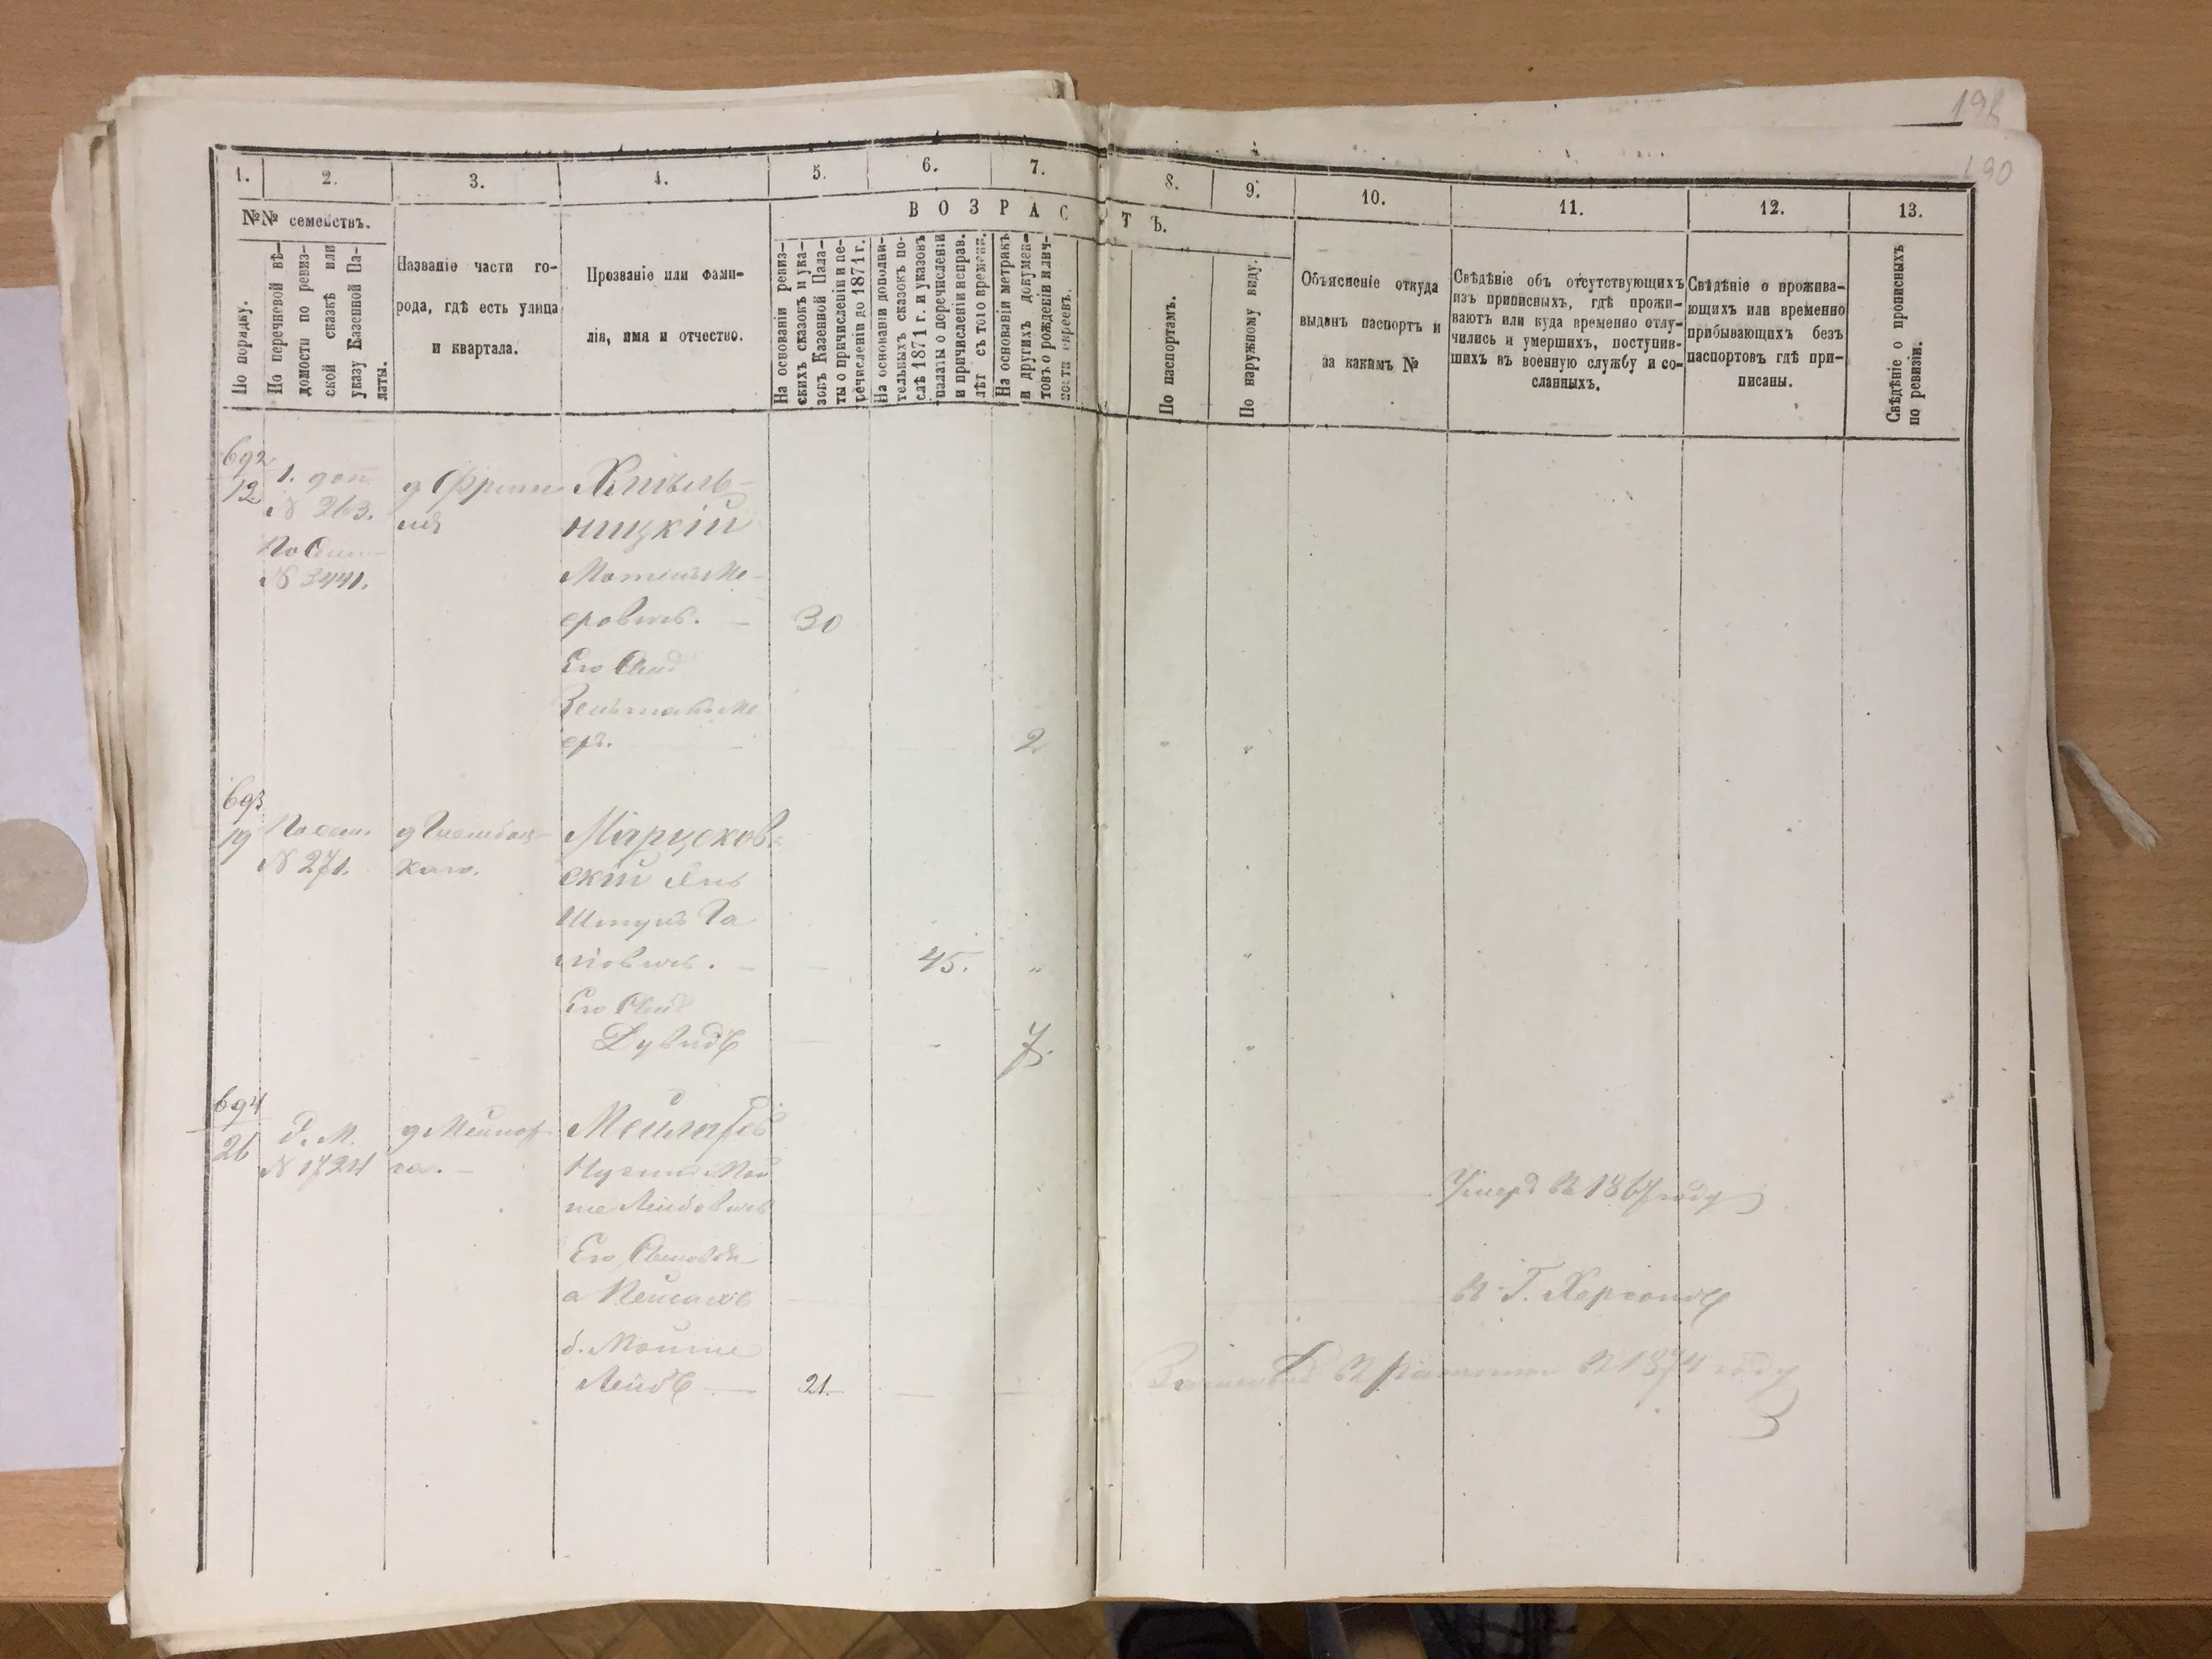 198
190
1. 2. 3. 4. 5. 6. 7. 8. 9. 10. 11. 12. 13.
№№ семействъ.
ВОЗРАСТЪ.
По порядку.
По перечневой вѣ-
домости по ревиз-
ской сказкѣ или
указу Казенной Па-
латы.
Названіе части го-
рода, гдѣ есть улица
и квартала.
Прозваніе или фами-
лія, имя и отчество.
На основаніи ревиз-
скихъ сказокъ и ука-
зовъ Казенной Пала-
ты о причисленіи и пе-
речисленіи до 1871 г.
На основаніи дополни-
тельныхъ сказокъ по-
слѣ 1871 г. и указовъ
палаты о перечисленіи
и причисленіи исправ.
лѣт съ того времени.
На основаніи метрикъ
и другихъ докумен-
товъ о рожденіи и лич-
ности евреевъ.
По паспортамъ.
По наружному виду.
Объясненіе откуда
выданъ паспортъ и
за какимъ №
Свѣдѣніе объ отсутствующихъ
изъ приписныхъ, гдѣ прожи-
ваютъ или куда временно отлу-
чились и умершихъ, поступив-
шихъ въ военную службу и со-
сланныхъ.
Свѣдѣніе о прожива-
ющихъ или временно
прибывающихъ безъ
паспортовъ гдѣ при-
писаны.
Свѣдѣніе о прописныхъ
по ревизіи.
692
12
1. доп.
№ 263.
№ 3441.
Хмѣль-
ницкій
Ме-
еровичъ. 30
Его Сынъ
еръ. 2
693
19
№ 271.
Марцеков-
скій
Шмуль
45.
Его Сынъ
Дувидъ 7.
694
26
№ 1724
Мой
ше Лейбовичъ
Умеръ въ 1867 году
Его Сыновья
а
въ Г. Херсонѣ
б. Мойше
Лейбъ 21.
въ 1874 году